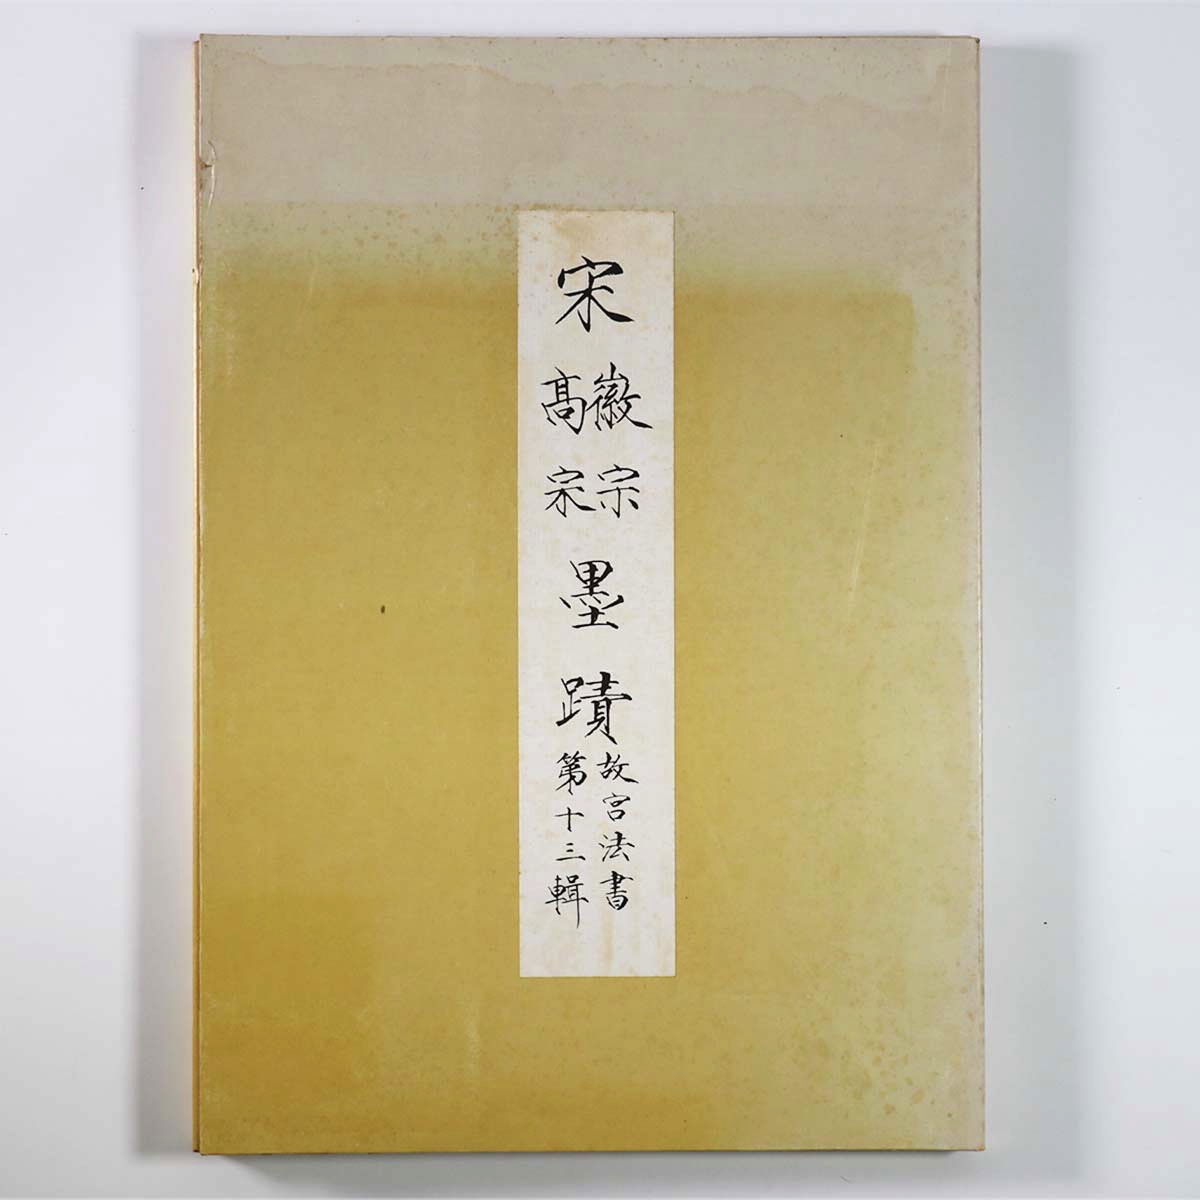 宋
徽宗
髙宗
墨蹟
故宮法書
第十三輯